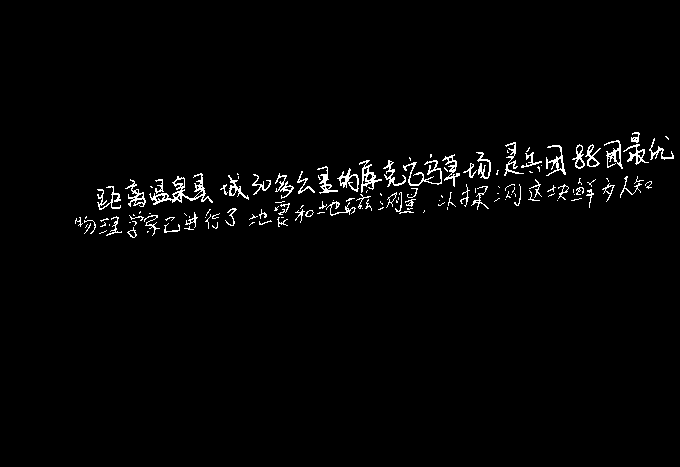 距离温泉县城30多公里的库克它乌草场,是兵团88团最优
物理学家已进行了地震和地磁测量,以探测这块鲜为人知